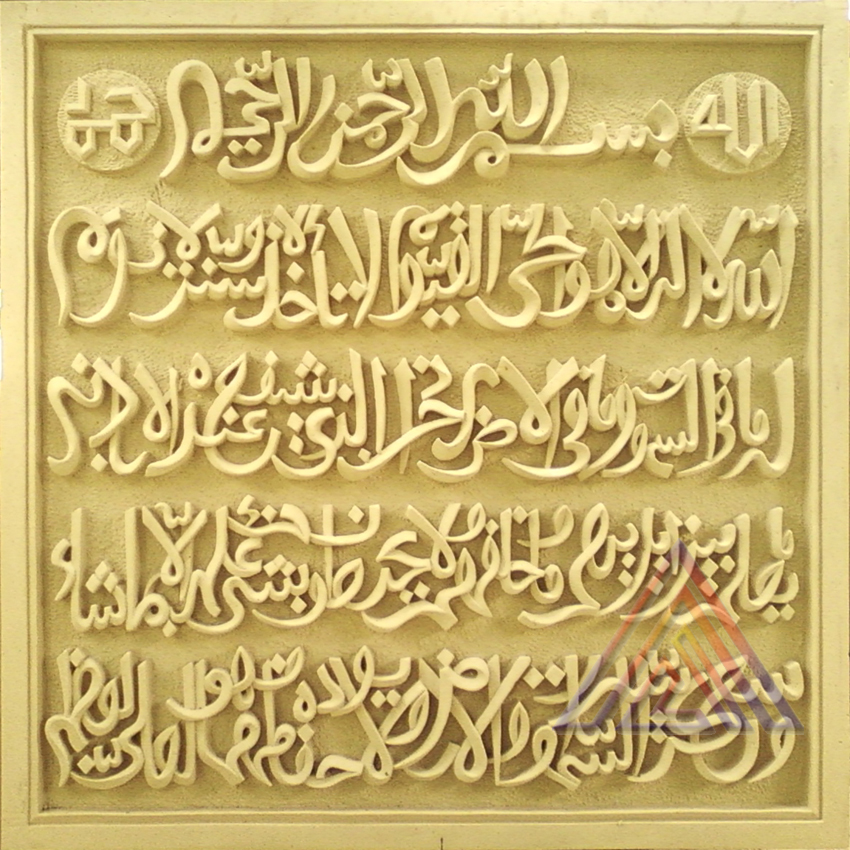 الله بسم الله الرحمن الرحيم محمد
الله لا إله إلا هو الحي القيوم لا تأخذه سنة ولا نوم
له ما في السموت وما في الأرض من ذا الذي يشفع عنده إلا بإذنه
يعلم ما بين أيديهم وما خلفهم ولا يحيطون بشيء من علمه إلا بما شاء
وسع كرسيه السموت والأرض ولا يوده حفظهما وهو العلي العظيم